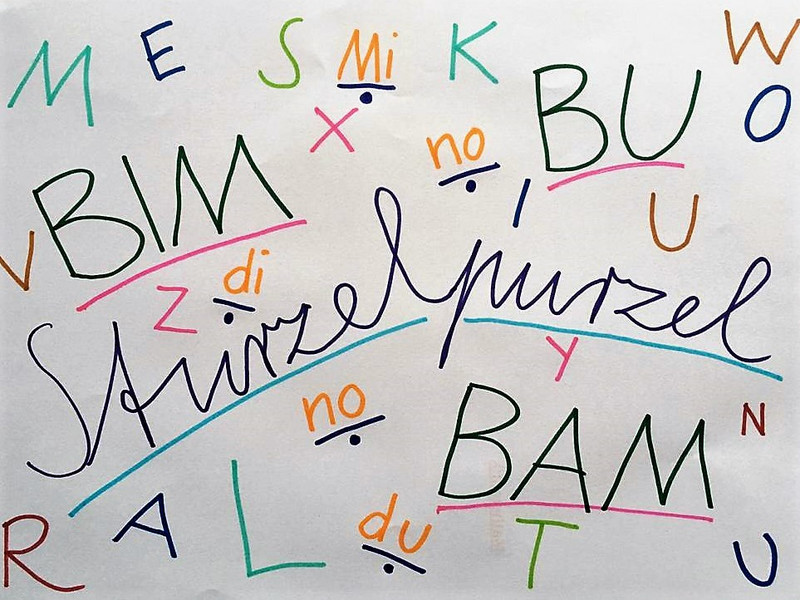 M E S Mi K W
X no BU O
BIM I U
V Z di
Sturzelpurzel
Y
no BAM N
R A L du T U